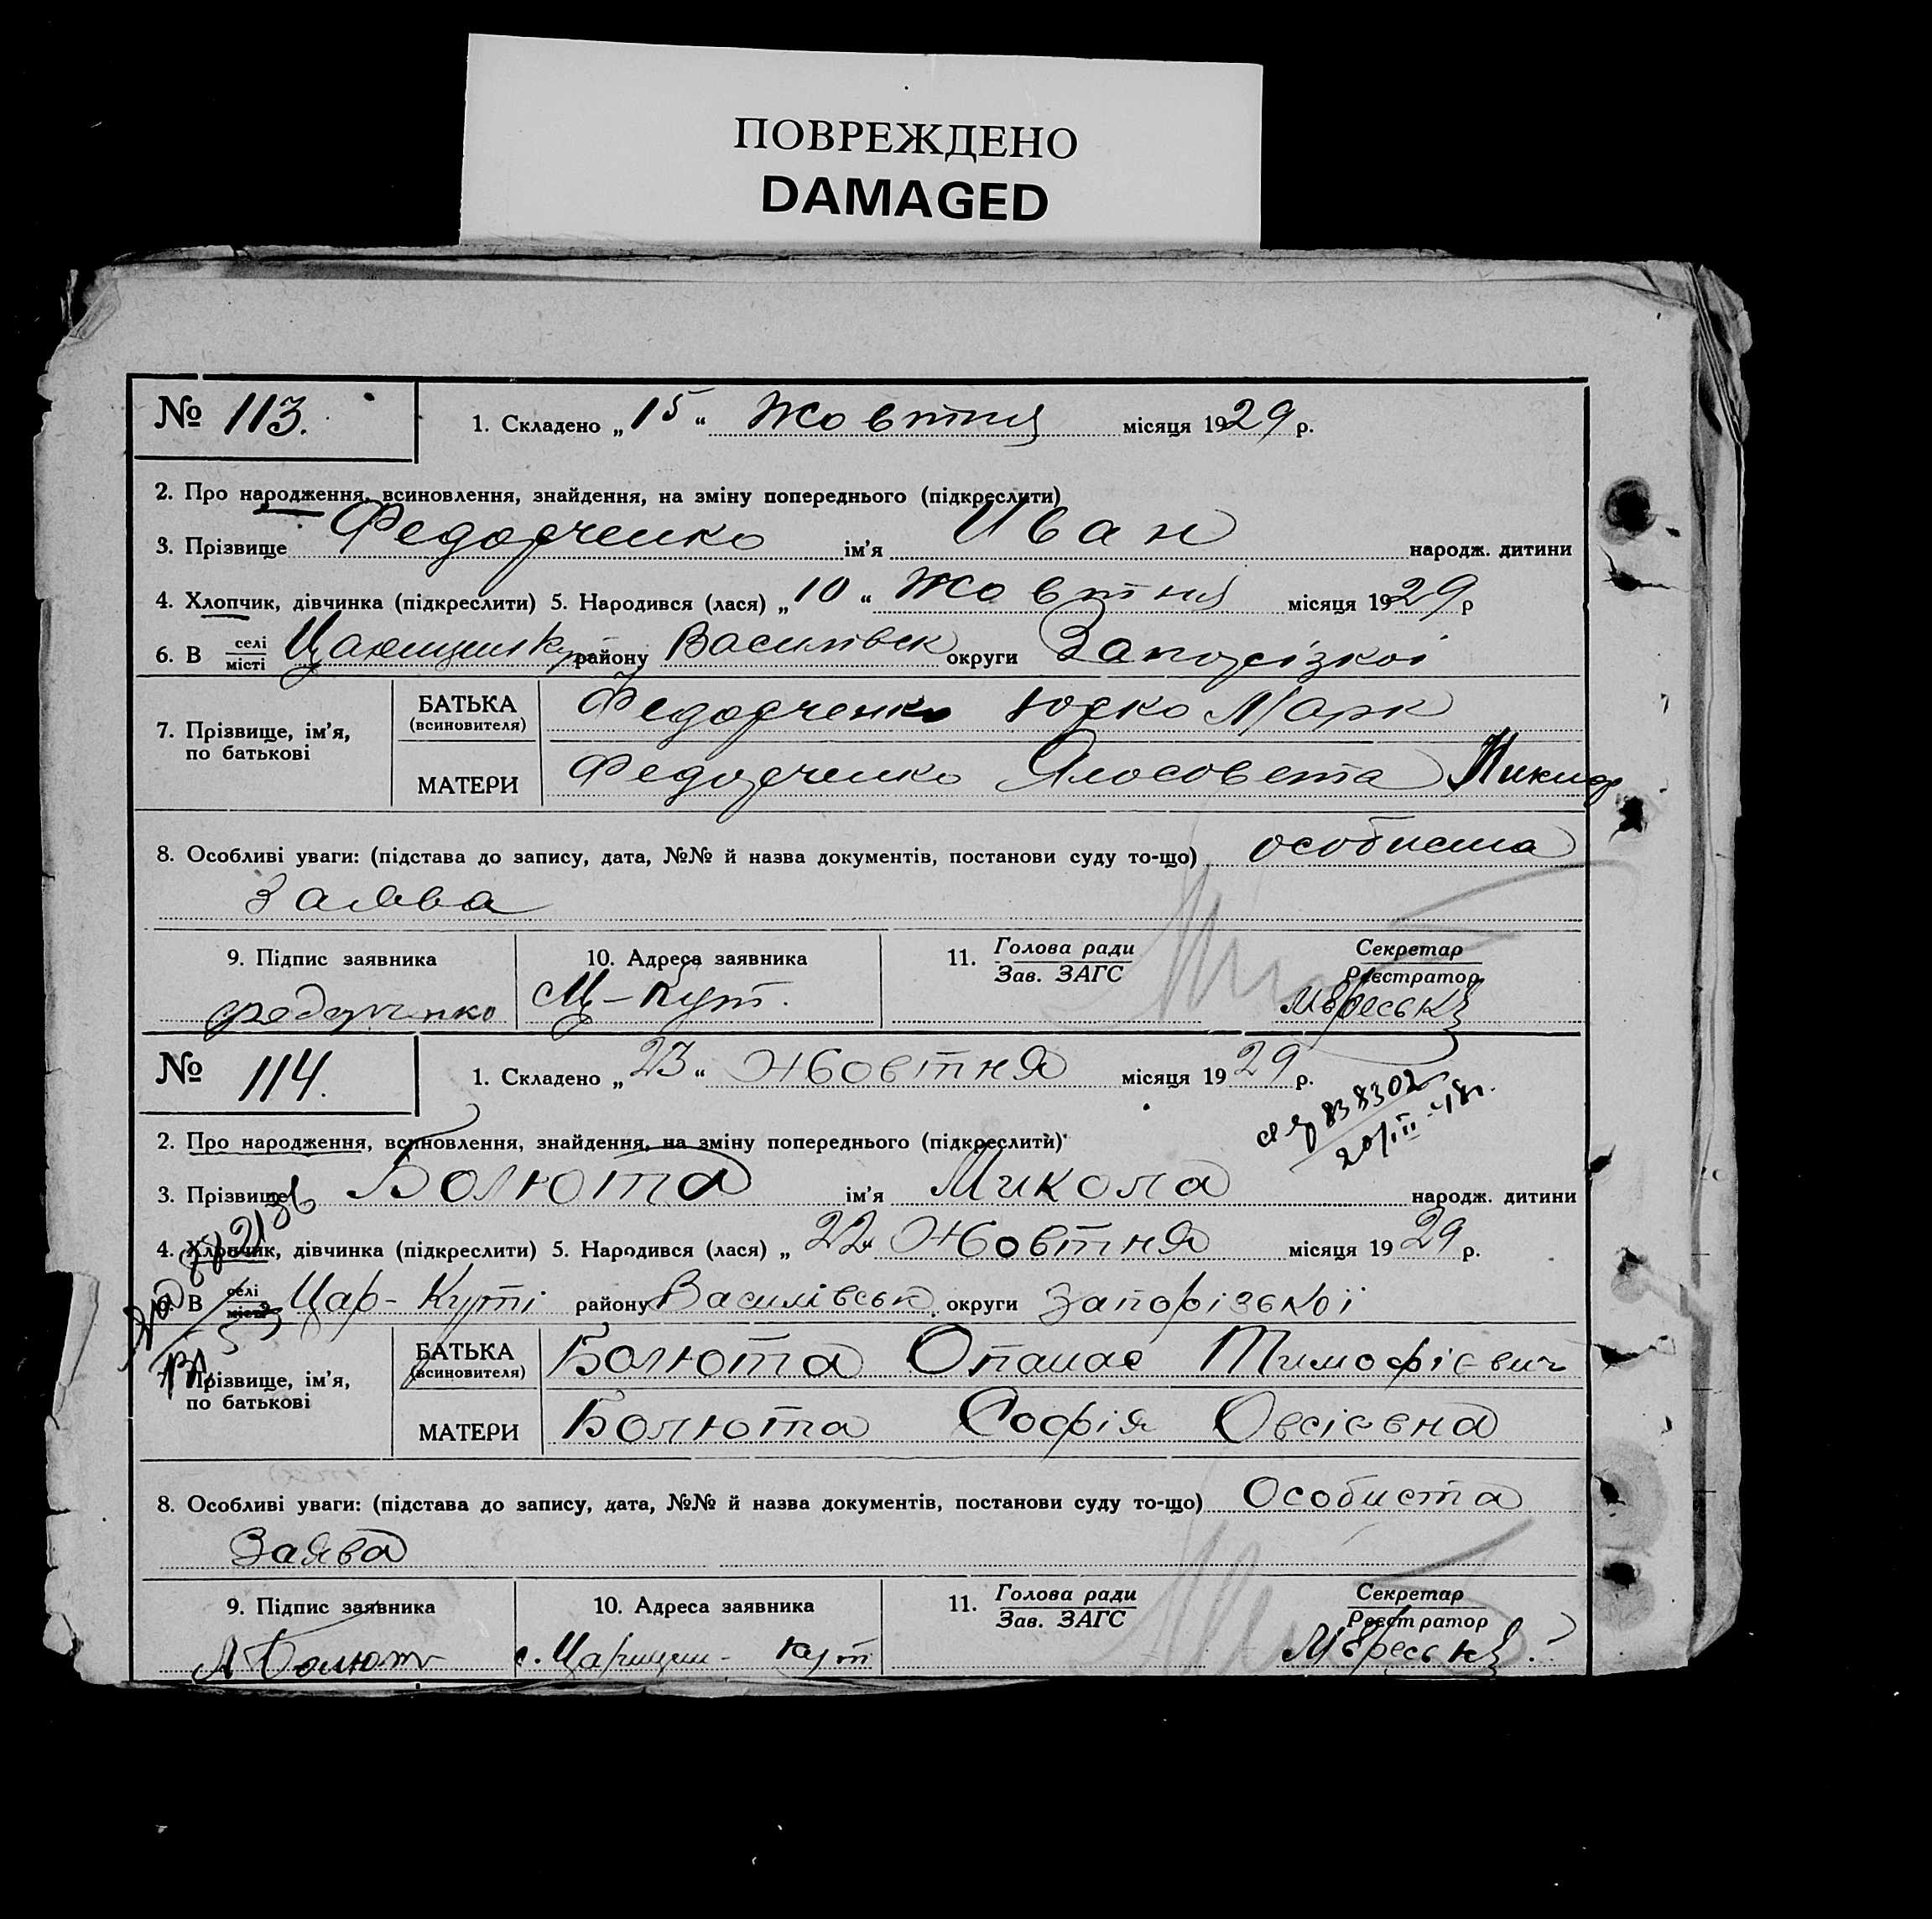 ПОВРЕЖДЕНО
DAMAGED
№ 113.
1. Складено „15“ Жовтня місяця 1929 р.
2. Про народження, всиновлення, знайдення, на зміну попереднього (підкреслити)
3. Прізвище Федорченко ім'я Иван народж. дитини
4. Хлопчик, дівчинка (підкреслити) 5. Народився (лася) „10“ Жовтня місяця 1929 р
6. В селі місті району Василівск округи Запорізкоі
7. Прізвище, ім'я, по батькові
БАТЬКА (всиновителя) Федорченко Юрко Марк
МАТЕРИ Федорченко Ялосовета Никиф
8. Особливі уваги: (підстава до запису, дата, №№ й назва документів, постанови суду то-що) особиста
заява
9. Підпис заявника 10. Адреса заявника 11. Голова ради Зав. ЗАГС Секретар Реєстратор
Ц-Кут.
№ 114.
1. Складено „23“ Жовтня місяця 1929 р.
838302
20/III-48г.
2. Про народження, всиновлення, знайдення, на зміну попереднього (підкреслити)
3. Прізвище Болюта ім'я Микола народж. дитини
4. Хлопчик, дівчинка (підкреслити) 5. Народився (лася) „22“ Жовтня місяця 1929 р.
6. В селі місті Цар-Куті району Василівськ. округи Запорізької
7. Прізвище, ім'я, по батькові
БАТЬКА (всиновителя) Болюта Опанас Тимофієвич
МАТЕРИ Болюта Софія Овсієвна
8. Особливі уваги: (підстава до запису, дата, №№ й назва документів, постанови суду то-що) Особиста
Заява
9. Підпис заявника 10. Адреса заявника 11. Голова ради Зав. ЗАГС Секретар Реєстратор
А Болюта с. Царицин-Кут